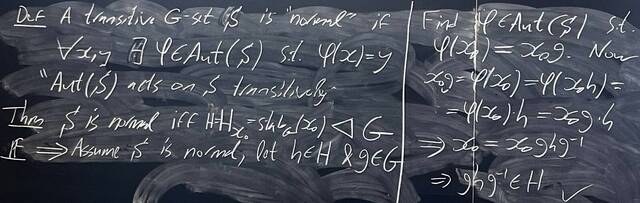 Def A transitive G-set S is "normal" if
∀x,y ∃ φ∈Aut(S) s.t. φ(x)=y
"Aut(S) acts on S transitively"
Thm S is normal iff H=H_{x_0}=stab_G(x_0) ◁ G
Pf ⇒ Assume S is normal, let h∈H & g∈G
Find φ∈Aut(S) s.t.
φ(x_0)=x_0g. Now
x_0g=φ(x_0)=φ(x_0h)=
=φ(x_0)·h=x_0g·h
⇒ x_0=x_0ghg^{-1}
⇒ ghg^{-1}∈H ✓